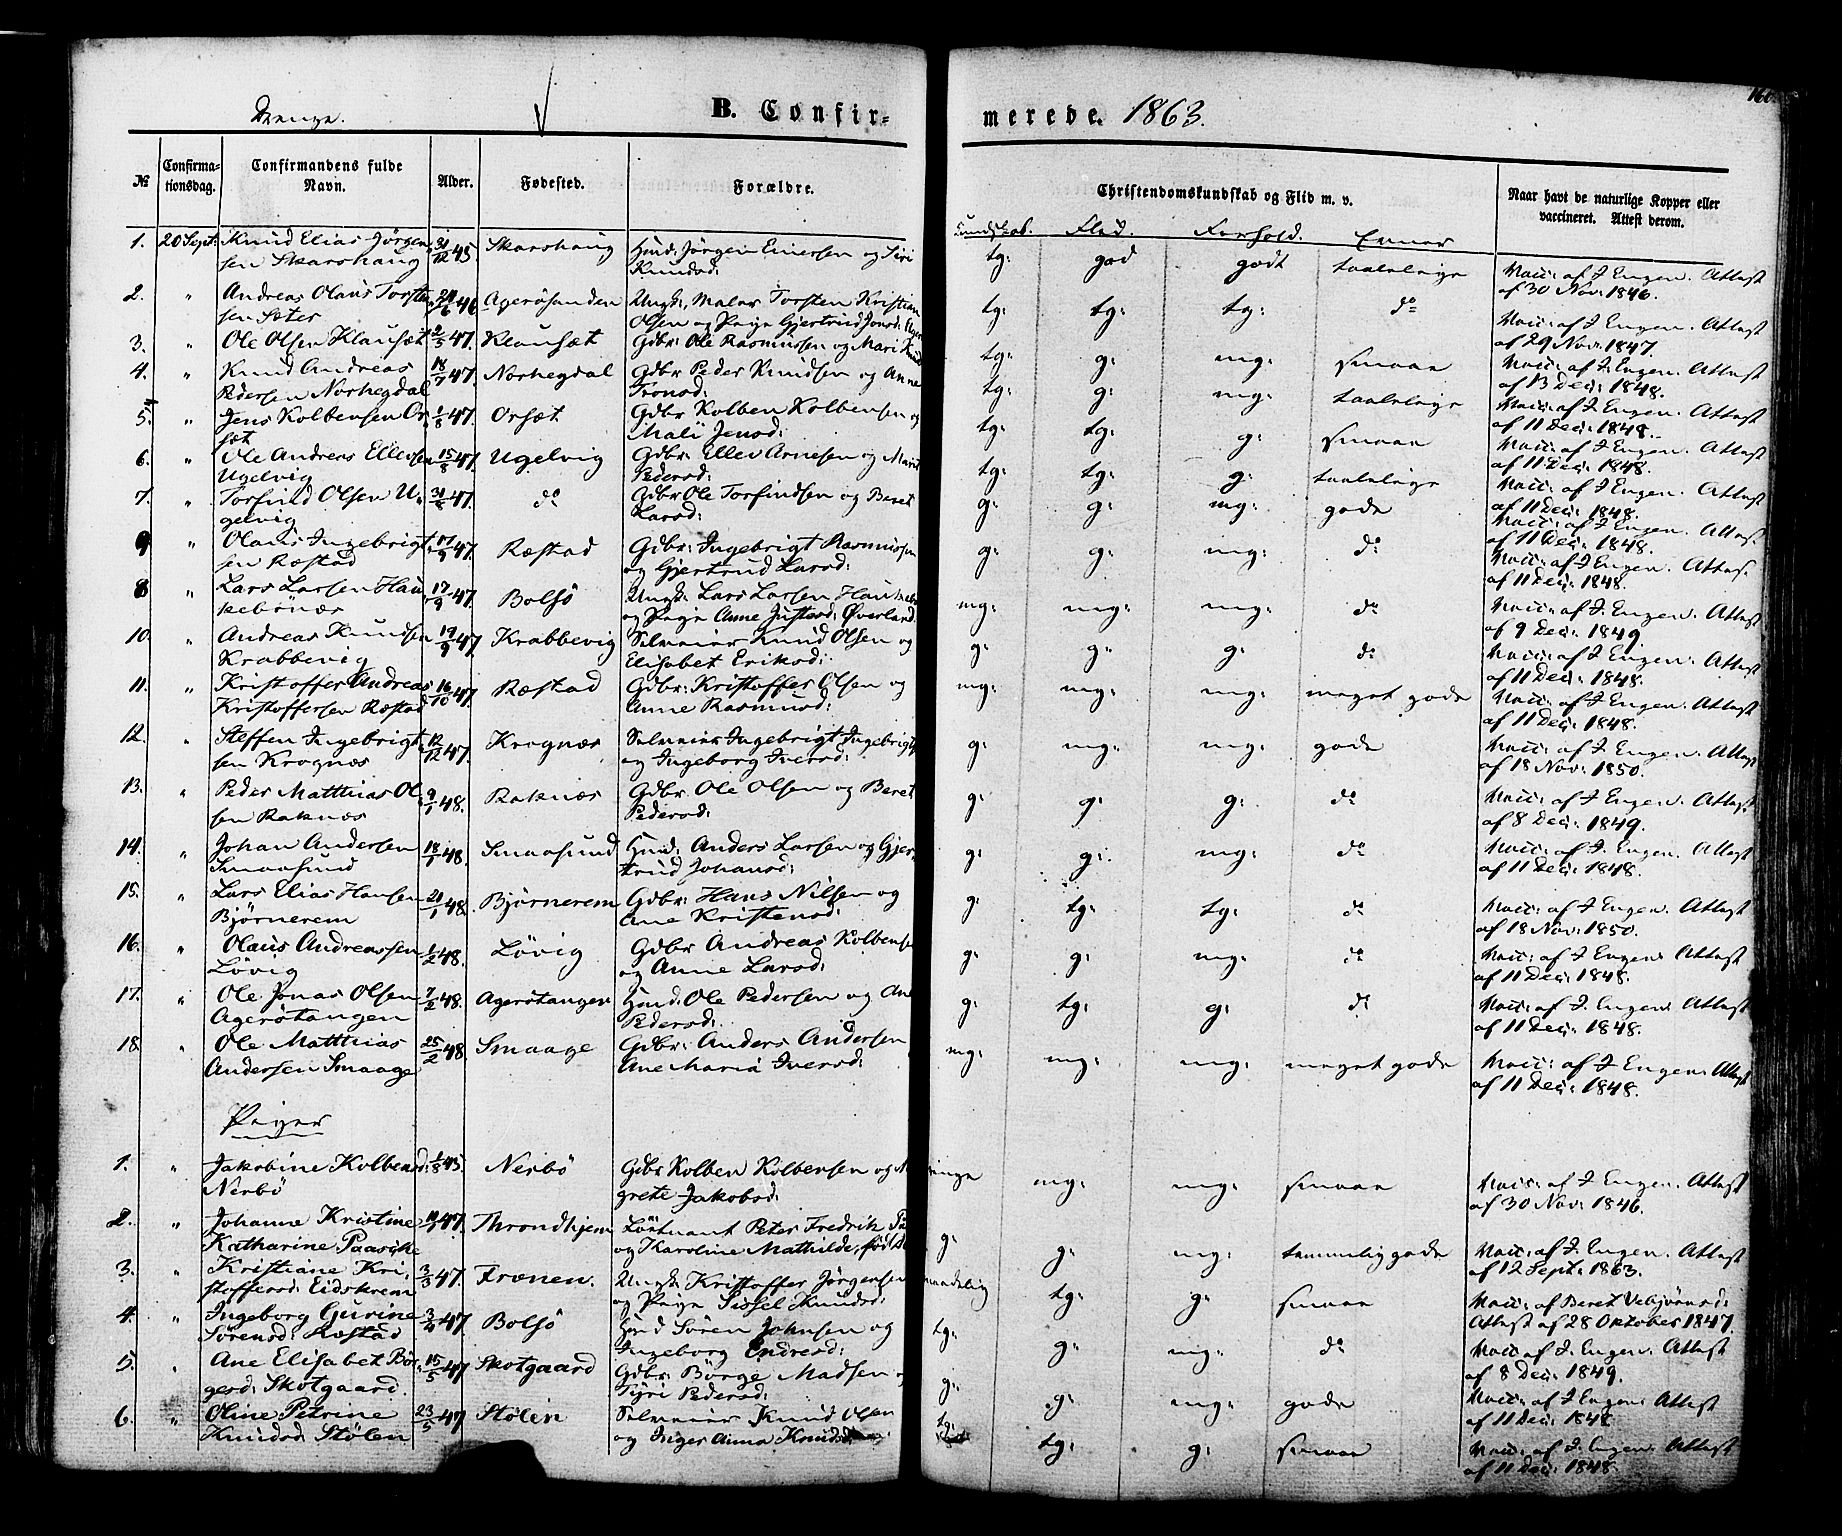 Drenge.
B. Confirmerede. 1863.
160
№ Confirmationsdag. Confirmandens fulde Navn. Alder. Fødested. Forældre. Christendomskundskab og Flid m. v. Naar havt de naturlige Kopper eller vaccineret. Attest derom.
Kundskab. Flid. Forhold. Evner
1. 20 Sept: Knud Elias Jörgen 31/12 45 Skarshaug Huusm: Jörgen Einersen og Siri tg: god godt taalelige Vacc: af J Engen. Attest
sen Skarshaug Knudsd: af 30 Nov: 1846.
2. " Andreas Olaus Torste 46 Agerösanden Ungk: Maler Torsten Kristian tg: tg: tg: do Vacc: af J. Engen. Attest
sen Sæter Olsen og Pige Gjertrud Jonsd: af 29 Nov: 1847.
3. " Ole Olsen Klausæt 2/5 47. Klausæt Gdbr: Ole Rasmussen og Mari tg: g: mg: smaae Vacc: af J. Engen. Attest
af 13 Dec: 1848.
4. " Knud Andreas 18/7 47. Norhegdal Gdbr Peder Knudsen og Anne tg: g: mg: taalelige Vacc: af J Engen. Attest
Pedersen Norhegdal Tronsd: af 11 Dec: 1848.
5. " Jens Kolbensen Or 1/8 47. Orsæt Gdbr Kolben Kolbensen og tg: tg: g: smaae Vacc: af J Engen. Attest
sæt Mali Jensd: af 11 Dec: 1848.
6. " Ole Andreas Ellevsen 47. Ugelvig Gdbr: Ellev Arnesen og Marit tg: tg: g: taalelige Vacc: af J Engen. Attest
Ugelvig Pedersd: af 11 Dec: 1848.
7. " Torfind Olsen U- 47. do Gdbr Ole Torfindsen og Beret g: g: mg: gode Vacc: af J Engen. Attest
gelvig Larsd: af 11 Dec: 1848.
9 " Olaus Ingebrigt 17/9 47. Ræstad Gdbr: Ingebrigt Rasmussen g: g: mg: do Vacc: af J Engen. Attest
sen Ræstad og Gjertrud Larsd: af 11 Dec: 1848.
8 " Lars Larsen Hau 17/9 47. Bolsö Ungk: Lars Larsen Hau mg: mg: mg: do Vacc: af J. Engen. Attest
kebönæs og Pige Anne Justsd: Øverland af 9 Dec: 1849
10. " Andreas Knudsen 19/9 47. Krabbevig Selveier Knud Olsen og g: g: g: do Vacc: af J Engen. Attest
Krabbevig Elisabet Eriksd: af 11 Dec: 1848.
11. " Kristoffer Andreas 16/10 47. Ræstad Gdbr: Kristoffer Olsen og mg: mg: mg: meget gode Vacc: af J Engen. Attest
Kristoffersen Ræstad Anne Rasmusd: af 11 Dec: 1848.
12. " Steffen Ingebrigt 12/12 47. Krognæs Selveier Ingebrigt Ingebrigt g: mg: mg: gode Vacc: af J Engen. Attest
sen Krognæs og Ingeborg Iversd: af 18 Nov: 1850.
13. " Peder Matthias Ol 9/1 48. Raknæs Gdbr Ole Olsen og Beret g: g: g: do Vacc: af J Engen. Attest
sen Raknæs Pedersd: af 8 Dec: 1849.
14. " Johan Andersen 18/1 48. Smaasund Huusm: Anders Larsen og Gjer g: g: mg: do Vacc: af J Engen. Attest
Smaasund trud Johansd: af 11 Dec: 1848.
15. " Lars Elias Hansen 21/1 48. Bjørnerem Gdbr: Hans Nilsen og g: tg: tg: do Vacc: af J Engen. Attest
Bjørnerem Ane Kristensd: af 18 Nov: 1850.
16. " Olaus Andreassen 1/2 48. Lövig Gdbr Andreas Kolbense g: g: mg: do Vacc: af J Engen Attest
Lövig og Anne Larsd: af 11 Dec: 1848.
17. " Ole Jonas Olsen 7/2 48. Agerötangen Huusm: Ole Pedersen og Ane g: tg: g: do Vacc: af J. Engen Attest
Agerötangen Pedersd: af 11 Dec: 1848.
18. " Ole Matthias 25/2 48. Smaage Gdbr: Anders Andersen mg: mg: mg: meget gode Vacc: af J Engen: Attest
Andersen Smaage Ane Maria Iversd: af 11 Dec: 1848.
Piger
1. " Jakobine Kolbensd: 1/8 45. Nerbö Gdbr Kolben Kolbensen og ringe mg: mg: smaae Vacc: af J. Engen. Attest
Nerbö grete Jakobsd: af 30 Nov: 1846.
2. " Johanne Kristine 47. Throndhjem Löitnant Peter Fredrik g: g: mg: temmelig gode Vacc: af J. Engen. Attest
Katharine Paasche og Karoline Mathilde, født af 12 Sept: 1863.
3. " Kristiane Kri 3/3 47. Frænen. Ungk: Kristoffer Jörgensen maadelig tg: g: smaae Vacc: af Beret Vebjörnsd:
stoffersd: Eidskrem og Pige Sissel Knudsd: Attest af 28 Oktober 1847.
4. " Ingeborg Gurine 3/4 47 Bolsö Huusm Sören Johnsen og tg: g: mg: do Vacc: af J. Engen. Attest
Sörensd: Ræstad Ingeborg Endresd: af 8 Dec: 1849.
5. " Ane Elisabet Bör 15/5 47 Skotgaard Gdbr: Börge Madsen og g: g: mg: gode Vacc: af J Engen Attest
gesd: Skotgaard. Tyri Pedersd: af 11 Dec: 1848
6. " Oline Petrine 23/5 47 Stölen Selveier Knud Olsen tg: tg: g: smaae Vacc: af J. Engen Attest
Knudsd Stölen og Inger Anna Knudsd: af 11 Dec: 1848.